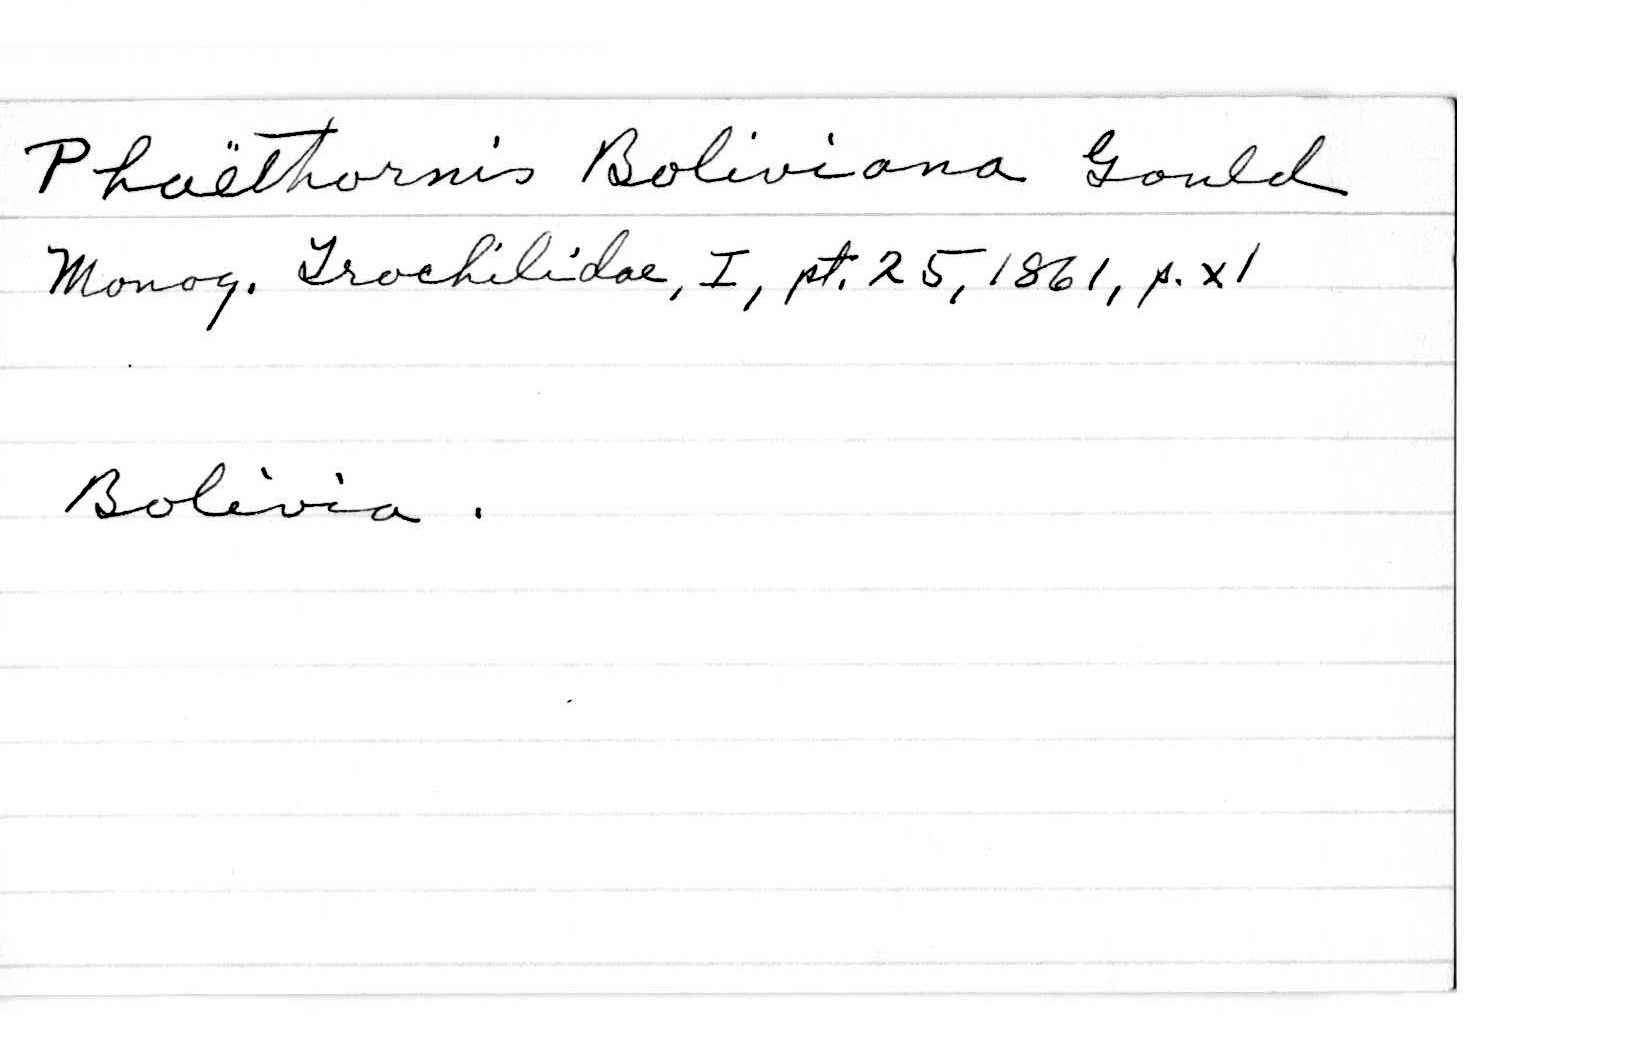 Phaëthornis Boliviana Gould
Monog. Trochilidae, I, pt. 25, 1861, p. xl
Bolivia.